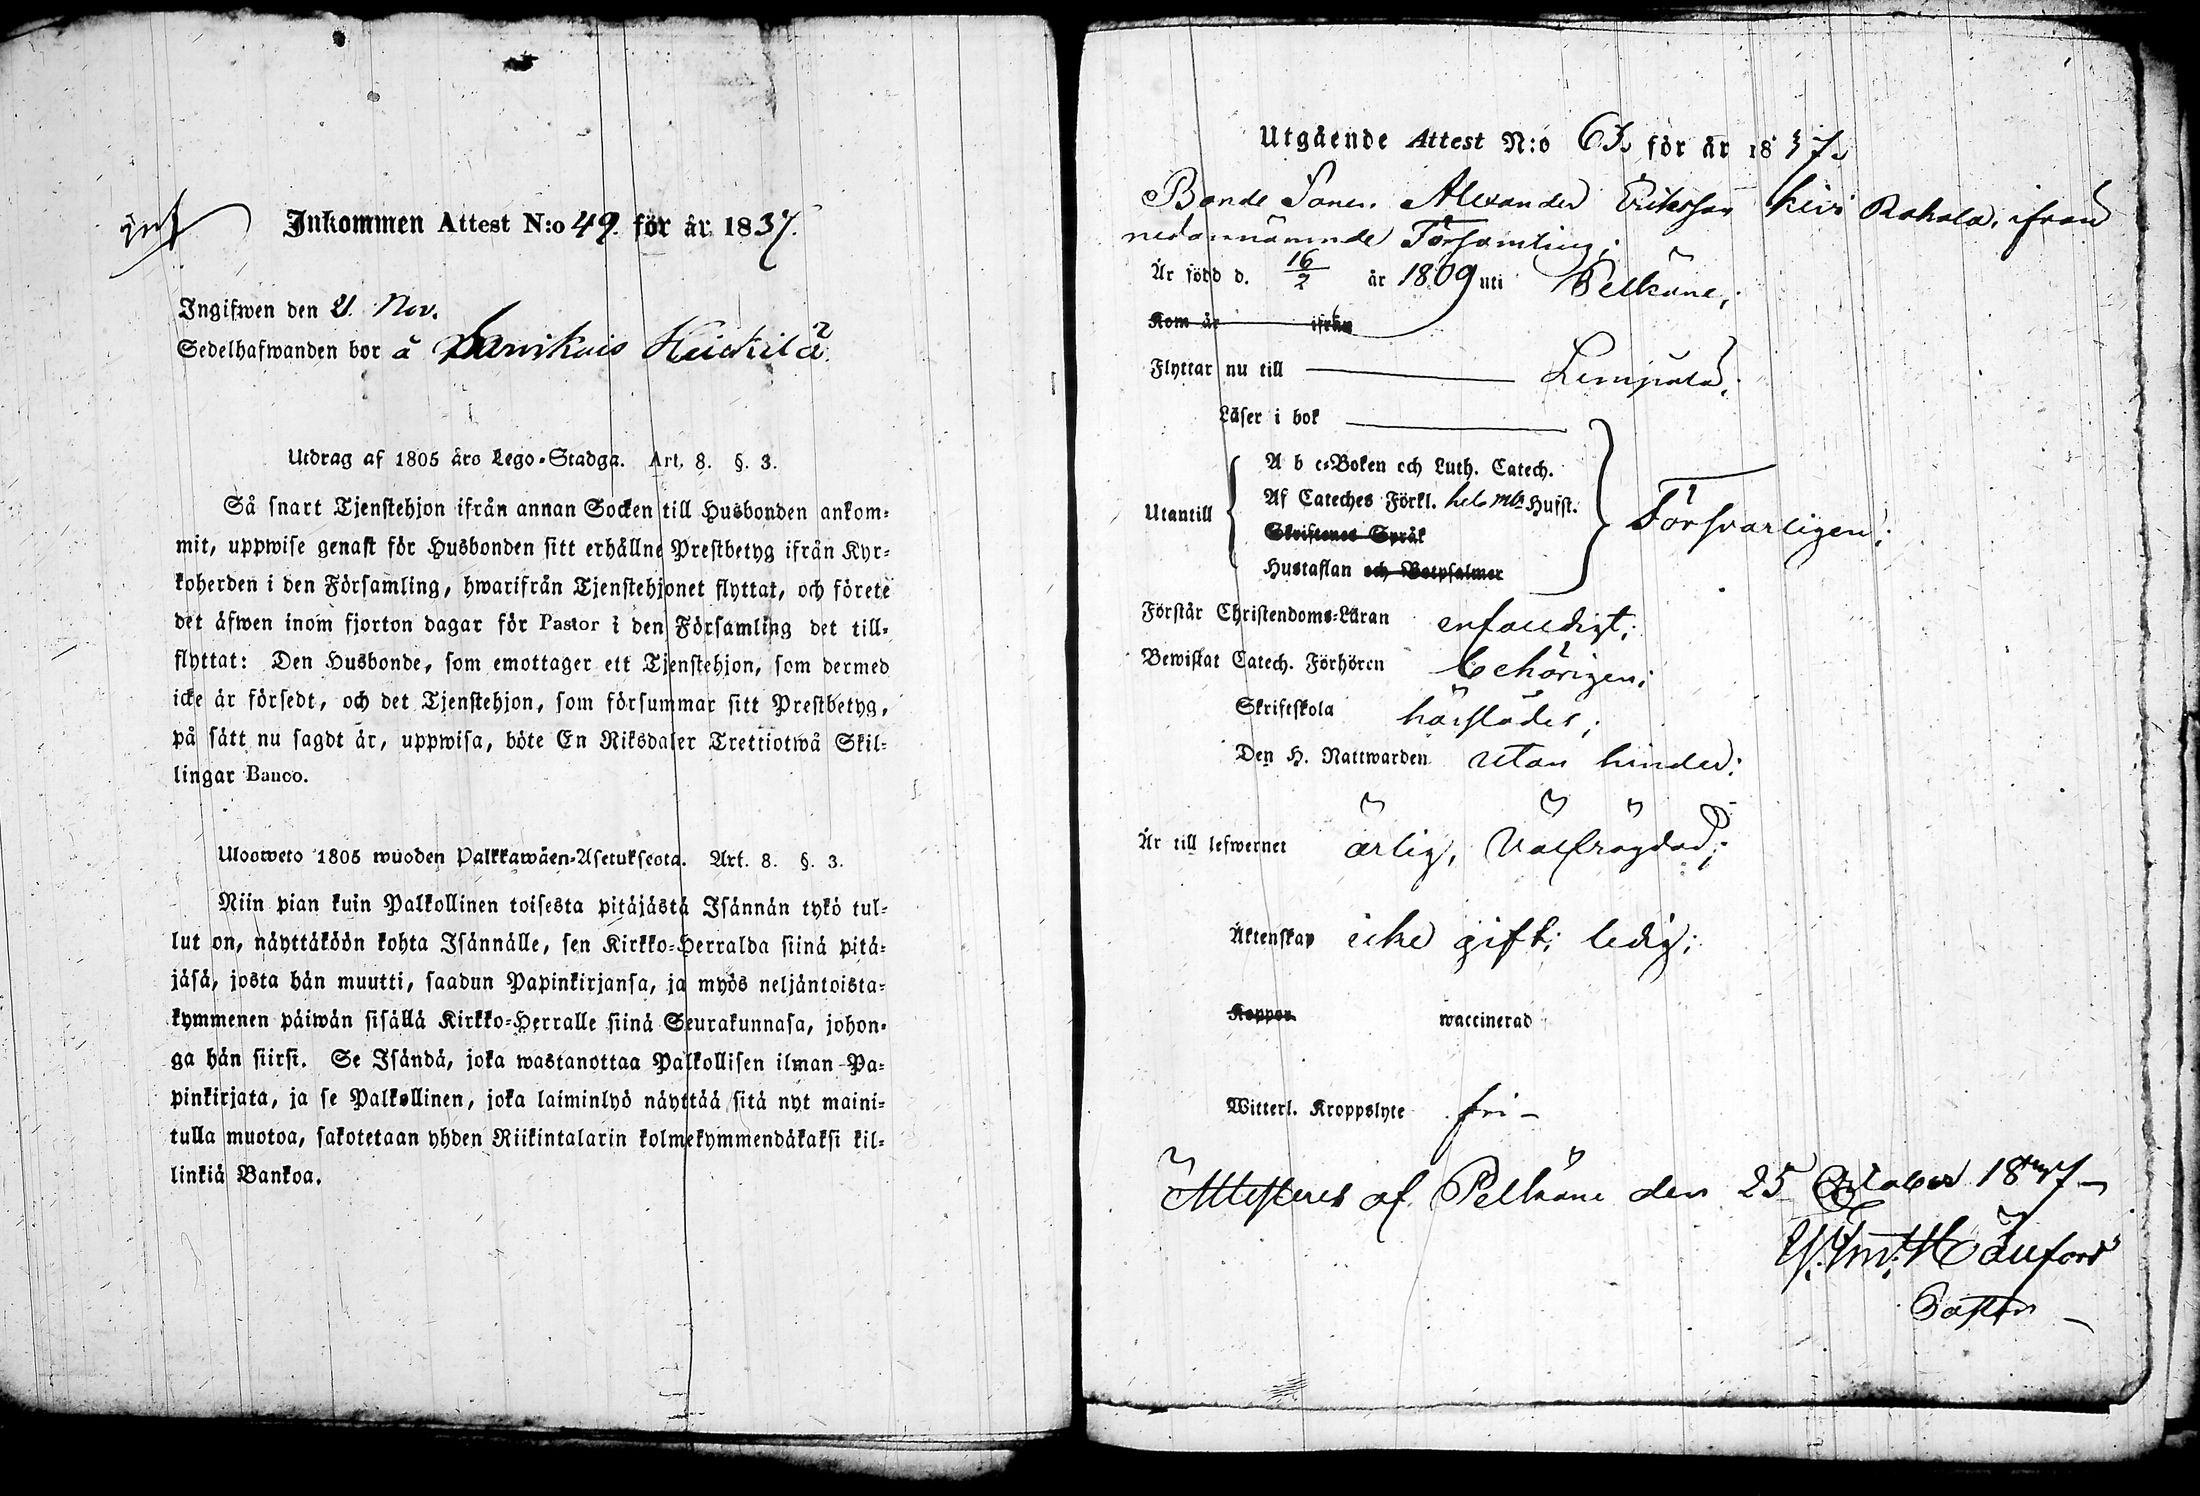 inf
Inkommen Attest N:o 49. för år 1837.
Ingifwen den 21. Nov.
Sedelhafwanden bor å Heickilä.
Utdrag af 1805 års Lego-Stadga. Art. 8. §. 3.
Så snart Tjenstehjon ifrån annan Socken till Husbonden ankom-
mit, uppwise genast för Husbonden sitt erhållne Prestbetyg ifrån Kyr-
koherden i den Församling, hwarifrån Tjenstehjonet flyttat, och förete
det äfwen inom fjorton dagar för Pastor i den Församling det till-
flyttat: Den Husbonde, som emottager ett Tjenstehjon, som dermed
icke är försedt, och det Tjenstehjon, som försummar sitt Prestbetyg,
på sätt nu sagdt är, uppwisa, böte En Riksdaler Trettiotwå Skil-
lingar Banco.
Ulosweto 1805 wuoden Palkkawäen-Asetuksesta. Art. 8. §. 3.
Niin pian kuin Palkollinen toisesta pitäjästä Isännän tykö tul-
lut on, näyttäköön kohta Isännälle, sen Kirkko-Herralda siinä pitä-
jäsä, josta hän muutti, saadun Papinkirjansa, ja myös neljäntoista-
kymmenen päiwän sisällä Kirkko-Herralle siinä Seurakunnasa, johon-
ga hän siirsi. Se Isändä, joka wastanottaa Palkollisen ilman Pa-
pinkirjata, ja se Palkollinen, joka laiminlyö näyttää sitä nyt maini-
tulla muotoa, sakotetaan yhden Riikintalarin kolmekymmendäkaksi kil-
linkiä Bankoa.
Utgående Attest N:o 65. för år 1837.
Bonde Sonen Alexander Eriksson Kivi Rahala, ifrån
nedannämnde Församling;
Är född d. 16/2 år 1809 uti Pelkäne;
Kom år ifrån
Flyttar nu till Lempälä;
Läser i bok
Utantill
A b c-Boken och Luth. Catech.
Af Cateches Förkl. hela mta Hufst.
Skriftenes Språk
Hustaflan och Botpsalmer
Försvarligen;
Förstår Christendoms-Läran enfaldigt;
Bewistat Catech. Förhören behörigen;
Skriftskola härstädes;
Den H. Nattwarden utan hinder;
Är till lefwernet ärlig, Välfrägdad;
Äktenskap icke gift; ledig;
Koppor waccinerad
Witterl. Kroppslyte fri -
Attesteres af Pelkäne den 25 October 1837 -
Pastor -